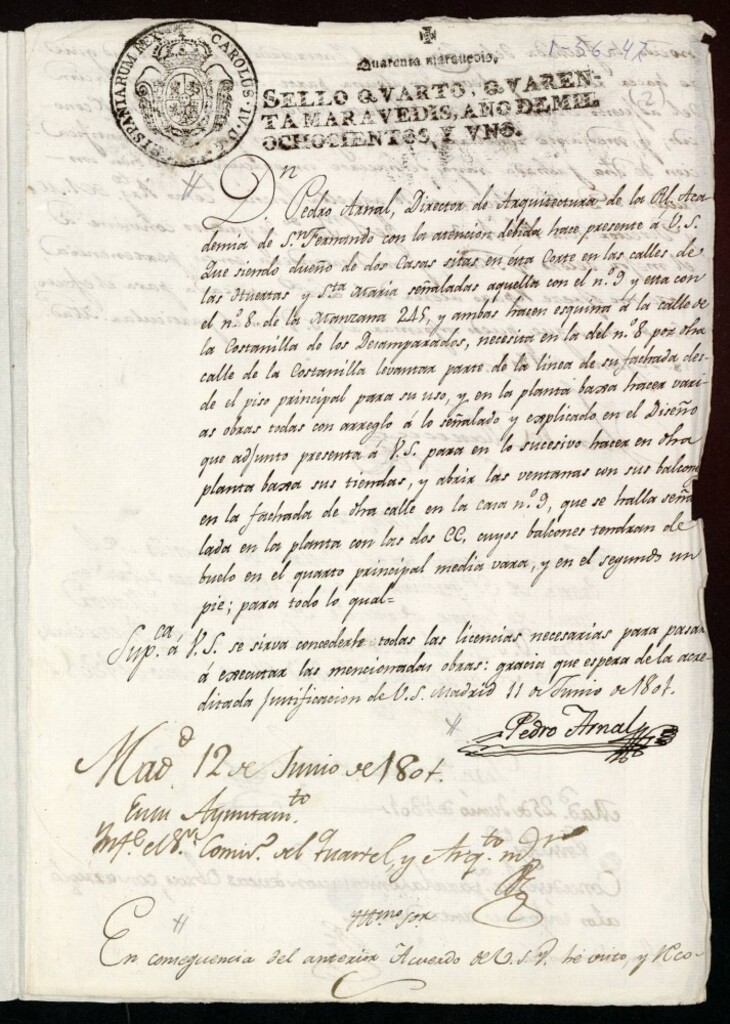 1-56-47
Quarenta maravedis.
HISPANIARUM REX CAROLUS IV D G
SELLO QVARTO, QVAREN-
TA MARAVEDIS, AÑO DE MIL
OCHOCIENTOS, Y VNO.
Dn Pedro Arnal, Director de Arquitectura de la Rl. Aca
demia de Sn. Fernando con la atencion debida hace presente á V.S.
Que siendo dueño de dos Casas sitas en esta Corte en las calles de
las Huertas y Sta. Maria señaladas aquella con el n.º 9 y esta con
el n.º 8 de la Manzana 245, y ambas hacen esquina á la calle de
la Costanilla de los Desamparados, necesita en la del n.º 8 por dha
calle de la Costanilla levantar parte de la linea de su fachada des-
de el piso principal para su uso, y en la planta baxa hacer vari-
as obras todas con arreglo á lo señalado y explicado en el Diseño
que adjunto presenta á V.S. para en lo sucesivo hacer en dha
planta baxa sus tiendas, y abrir las ventanas con sus balcones
en la fachada de dha calle en la casa n.º 9, que se halla seña
lada en la planta con las dos CC, cuyos balcones tendran de
buelo en el quarto principal media vara, y en el segundo un
pie; para todo lo qual=
Sup.ca á V.S. se sirva concederle todas las licencias necesarias para pasar
á executar las mencionadas obras: gracia que espera de la acre-
ditada justificacion de V.S. Madrid 11 de Junio de 1801.
Pedro Arnal
Mad.d 12 de Junio de 1801.
En su Ayuntam.to
Inf.e el Sr. Comis.o del Quartel, y Arq.to m.or
Yllmo Sor
En consequencia del anterior Acuerdo de V.S.Y. he visto, y reco-